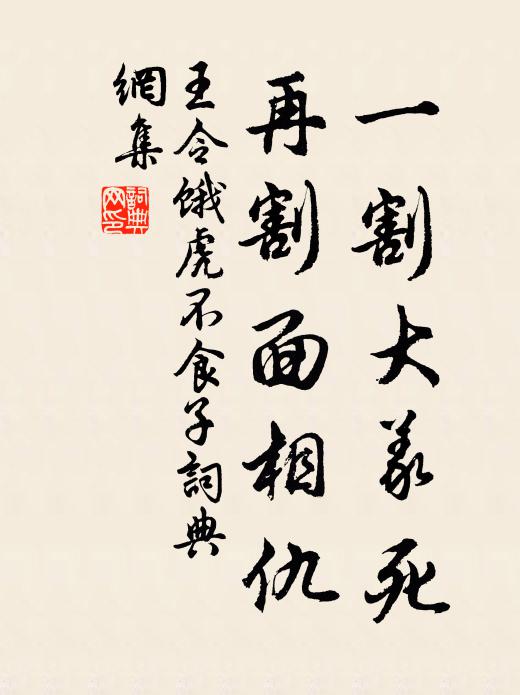 一割大義死
再割面相仇
王令餓虎不食子詞典
網集
詞典
网印